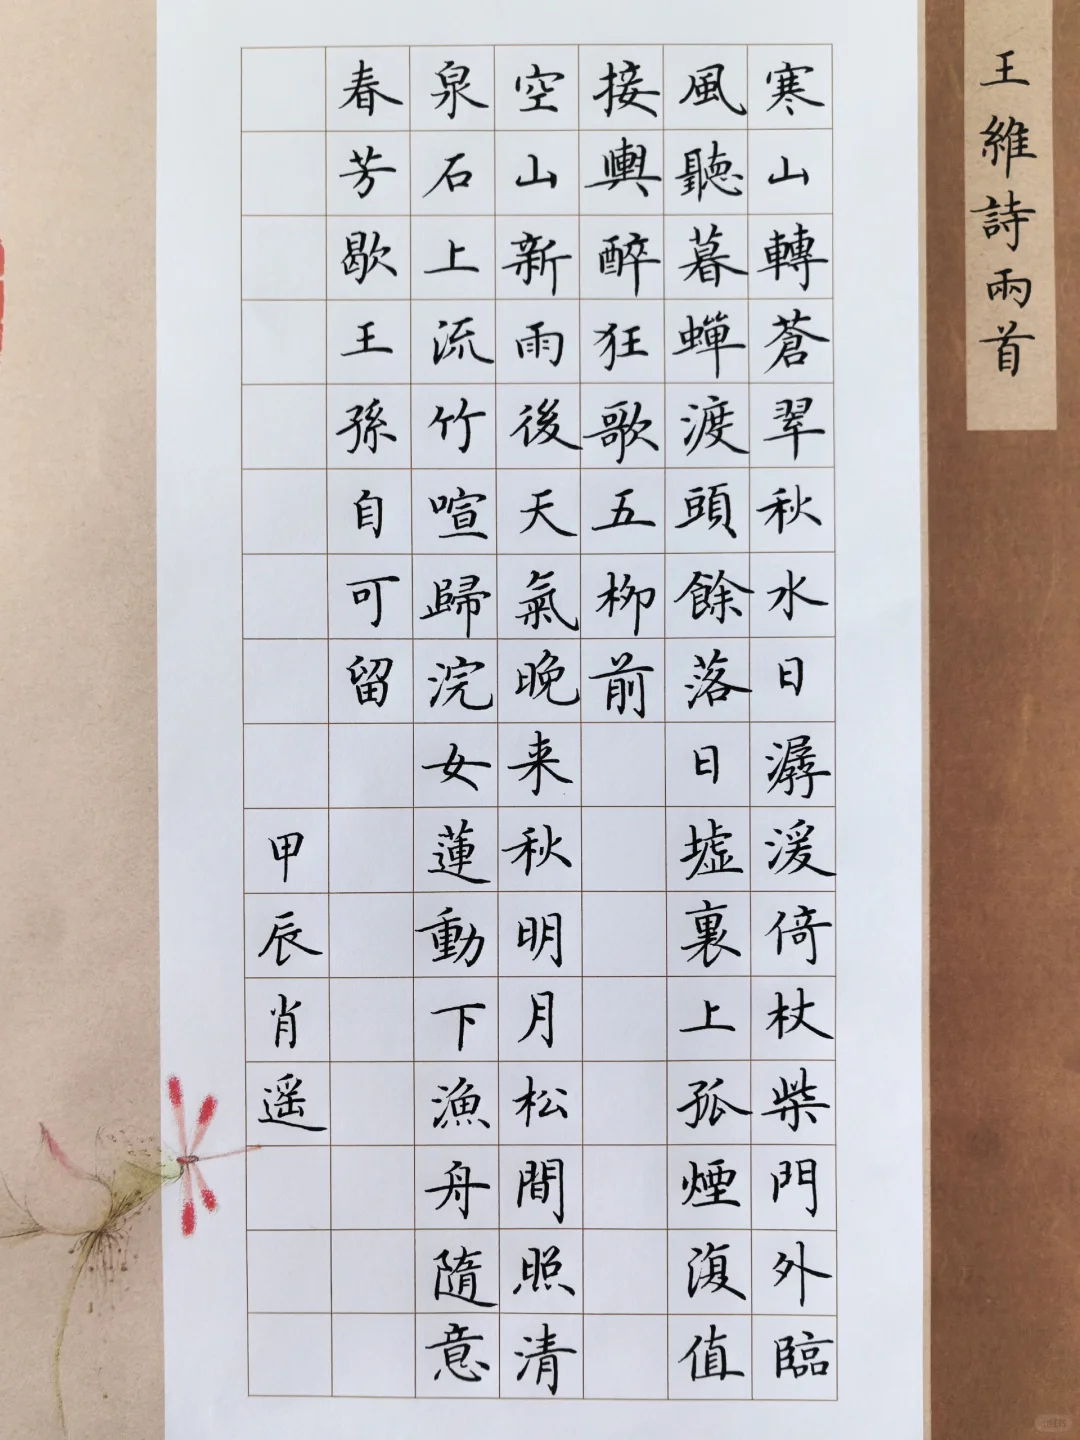 王維詩兩首
寒山轉蒼翠秋水日潺湲倚杖柴門外臨
風聽暮蟬渡頭餘落日墟裏上孤煙復值
接輿醉狂歌五柳前
空山新雨後天氣晚来秋明月松間照清
泉石上流竹喧歸浣女蓮動下漁舟隨意
春芳歇王孫自可留
甲辰肖遥